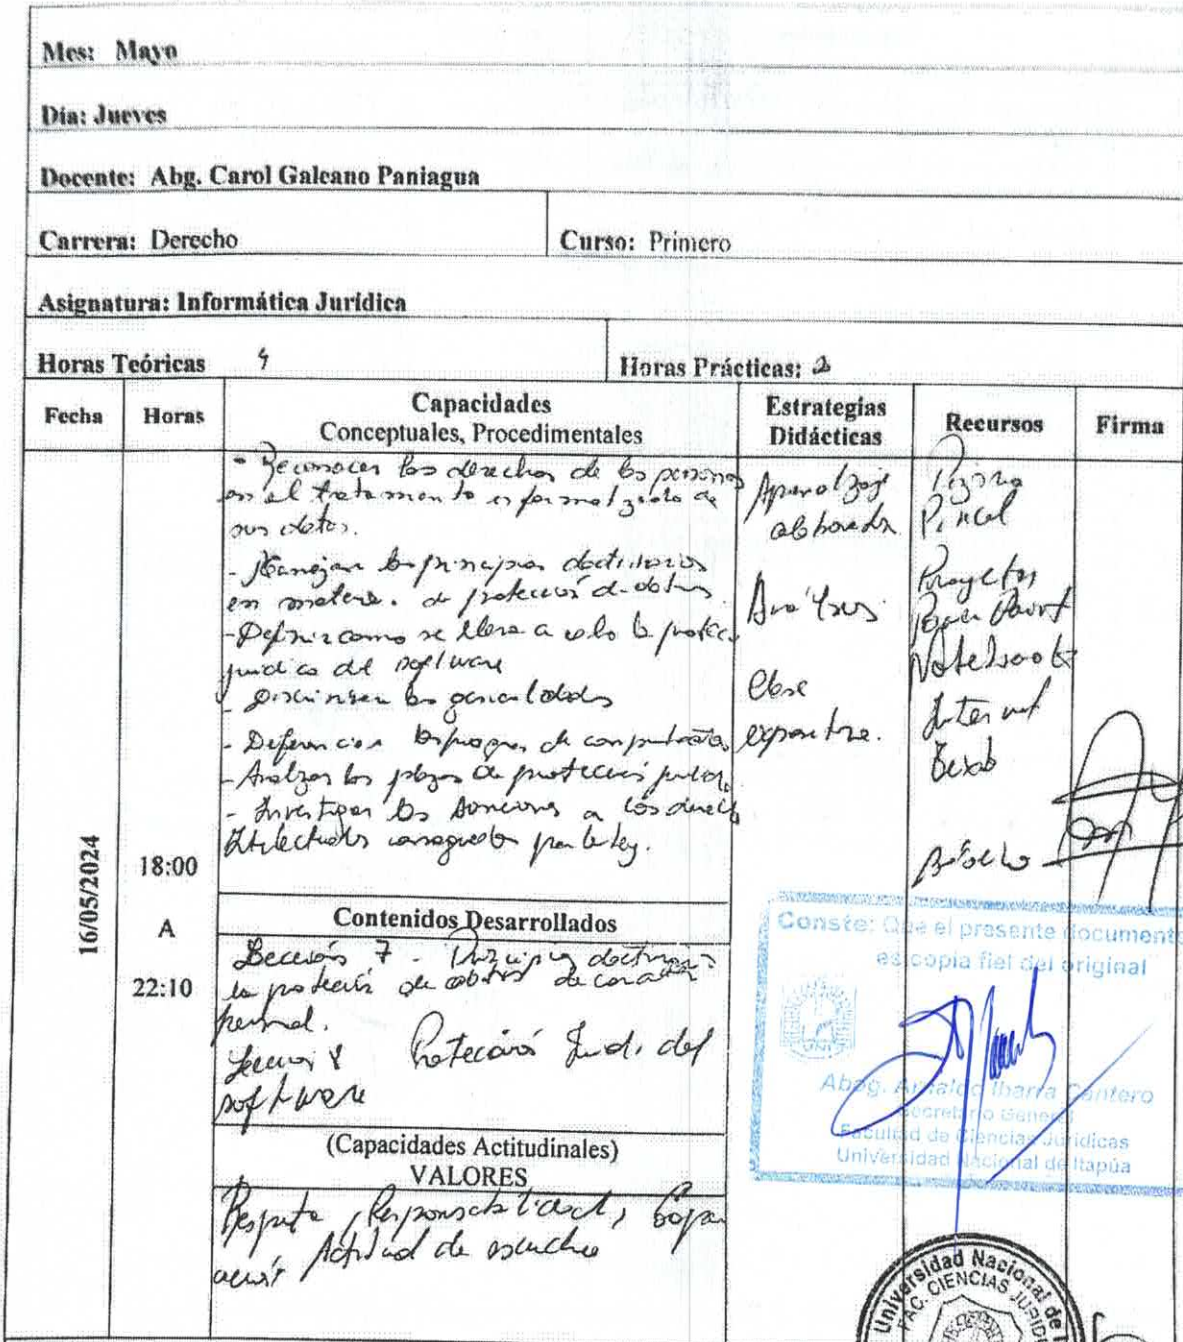 Mes: Mayo
Día: Jueves
Docente: Abg. Carol Galeano Paniagua
Carrera: Derecho
Curso: Primero
Asignatura: Informática Jurídica
Horas Teóricas 4
Horas Prácticas: 2
Fecha
Horas
Capacidades
Conceptuales, Procedimentales
Estrategias
Didácticas
Recursos
Firma
16/05/2024
18:00
A
22:10
- Reconocer los derechos de las personas
en el tratamiento informatizado de
sus datos.
- Manejar los principios doctrinarios
en materia de protección de datos
- Definir como se lleva a cabo la protecc.
jurídica del software
- Discriminar las generalidades
- Diferenciar los programas de computadoras
- Analizar los plazos de protección jurídica
- Investigar las sanciones a los derech
Intelectuales consagrados por la ley.
Aprendizaje
colaborador
Análisis
Clase
expositiva.
Pizarra
Pincel
Proyector
Power Point
Notebook
Internet
Contenidos Desarrollados
Lección 7 - Principios doctrinar
la protección de datos de carácter
personal.
Lección 8 Protección Jurid. del
software
(Capacidades Actitudinales)
VALORES
Respeto, Responsabilidad, Coope
ración Actitud de escucha
Conste: Que el presente documento
es copia fiel del original
UNI
Abog. Arnaldo Ibarra Cantero
Secretario General
Facultad de Ciencias Jurídicas
Universidad Nacional de Itapúa
Universidad Nacional de
FAC. CIENCIAS JURID